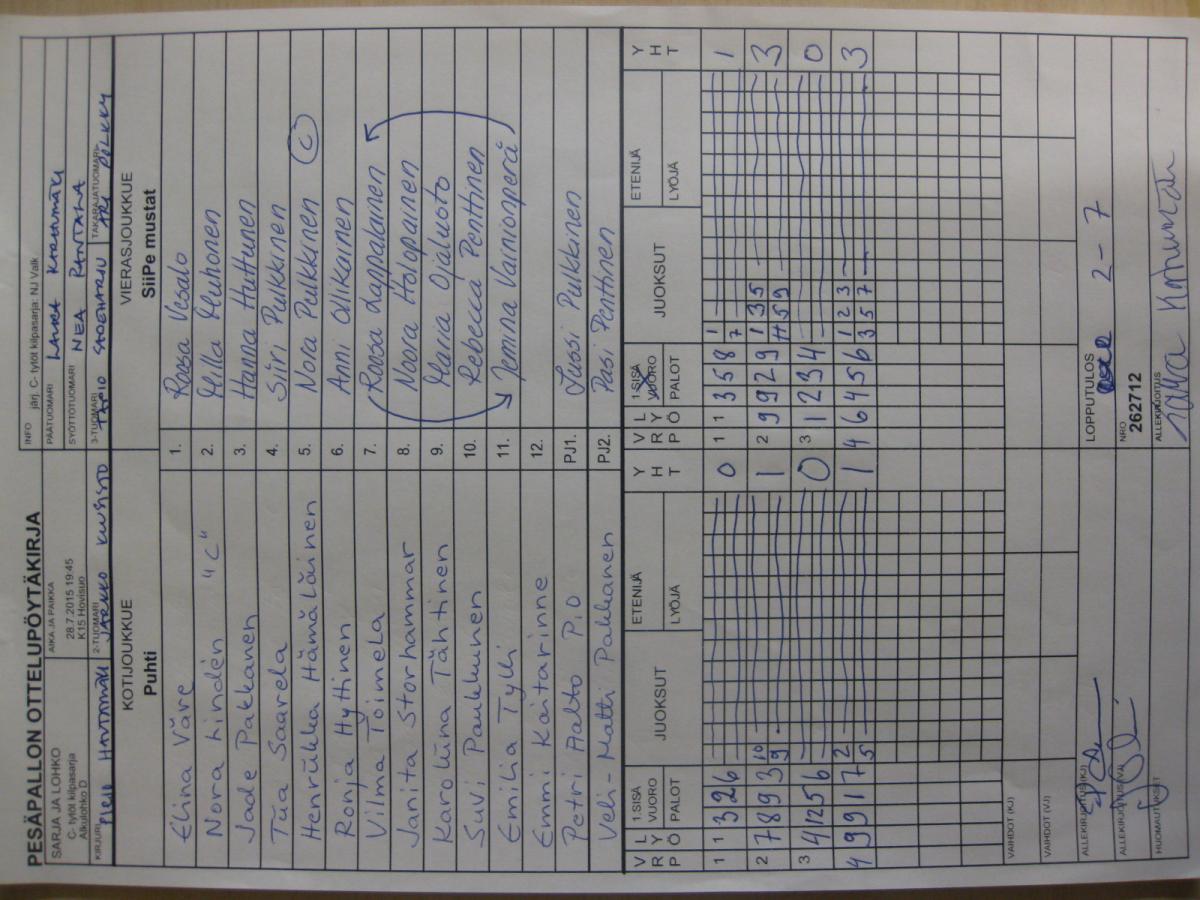 PESÄPALLON OTTELUPÖYTÄKIRJA
SARJA JA LOHKO
C- tytöt kilpasarja
Alkulohko D
AIKA JA PAIKKA
28.7.2015 19:45
K15 Hovisuo
INFO järj. C- tytöt kilpasarja: NJ Valk
PÄÄTUOMARI
SYÖTTÖTUOMARI NEA RANTALA
KIRJURI
2-TUOMARI JARKKO KUUSISTO
3-TUOMARI TAPIO
TAKARAJATUOMARI ARI PÖLKKY
KOTIJOUKKUE
Puhti
VIERASJOUKKUE
SiiPe mustat
Elina Väre 1. Roosa Vesalo
Nora Lindén "C" 2. Milla Muhonen
Jade Pakkanen 3. Hanna Huttunen
Tiia Saarela 4. Siiri Pulkkinen
Henriikka Hämäläinen 5. Nora Pulkkinen C
Ronja Hyttinen 6. Anni Ollikainen
Vilma Toimela 7. Roosa Lappalainen
Janita Storhammar 8. Noora Holopainen
Karoliina Tähtinen 9. Maria Ojaluoto
Suvi Paukkunen 10. Rebecca Penttinen
Emilia Tylli 11. Jemina Vainionperä
Emmi Kaitarinne 12.
Petri Aalto P.O PJ1. Jussi Pulkkinen
Veli-Matti Pakkanen PJ2. Pasi Penttinen
V R P L Y Ö 1.SISÄ VUORO PALOT JUOKSUT ETENIJÄ LYÖJÄ Y H T
V R P L Y Ö 1.SISÄ VUORO PALOT JUOKSUT ETENIJÄ LYÖJÄ Y H T
1 1 3 2 6 0 1 1 3 5 8 1 7 1
2 7 8 9 3 10 9 1 2 9 9 2 9 1 3 5 H 5 9 3
3 4 12 5 6 0 3 1 2 3 4 0
4 9 9 1 7 2 5 1 4 6 4 5 6 1 2 3 3 5 7 3
VAIHDOT (AJ)
VAIHDOT (VJ)
ALLEKIRJOITUS(KJ)
LOPPUTULOS 2 - 7
ALLEKIRJOITUS(VJ)
NRO
262712
HUOMAUTUKSET
ALLEKIRJOITUS